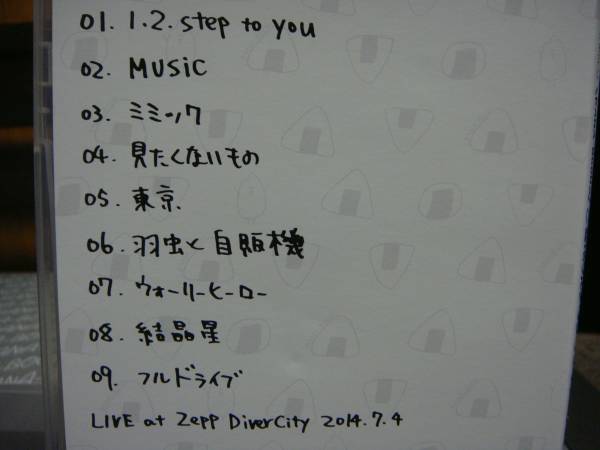 01. 1.2. step to you
02. MUSiC
03. ミミック
04. 見たくないもの
05. 東京
06. 羽虫と自販機
07. ウォーリーヒーロー
08. 結晶星
09. フルドライブ
LIVE at Zepp DiverCity 2014.7.4